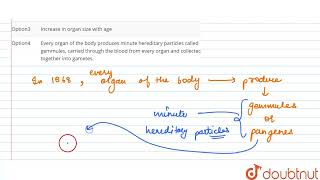 Option3 Increase in organ size with age
Option4 Every organ of the body produces minute hereditary particles called
gemmules, carried through the blood from every organ and collected
together into gametes.
In 1868, every organ of the body → produce
gemmules
or
pangenes
minute
hereditary particles
doubtnut